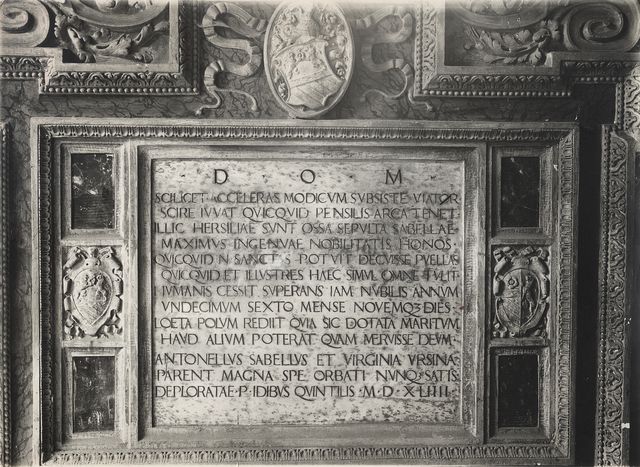 · D · O · M ·
SCILICET ACCELERAS MODICVM SVBSISTE VIATOR
SCIRE IVVAT QVICQVID PENSILIS ARCA TENET
ILLIC HERSILIAE SVNT OSSA SEPVLTA SABELLAE
MAXIMVS INGENVAE NOBILITATIS HONOS·
QVICQVID IN SANCTAS POTVIT DECVISSE PVELLAS
QVICQVID ET ILLVSTRES HAEC SIMVL OMNE TVLIT
HVMANIS CESSIT SVPERANS IAM NVBILIS ANNVM
VNDECIMVM SEXTO MENSE NOVEMQ3 DIES·
LOETA POLVM REDIIT QVIA SIC DOTATA MARITVM
HAVD ALIVM POTERAT QVAM MERVISSE DEVM·
ANTONELLVS SABELLVS ET VIRGINIA VRSINA
PARENT MAGNA SPE ORBATI NVNQ·SATIS
DEPLORATAE·P·IDIBVS QVINTILIS·M·D·XLIIII·